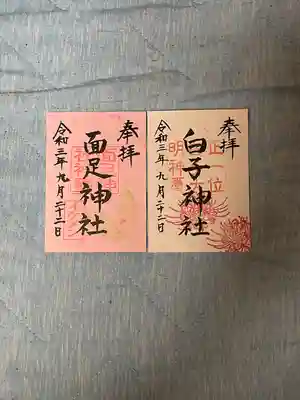 奉拝
白子神社
令和三年九月二十二日
正一位
奉拝
面足神社
令和三年九月二十二日